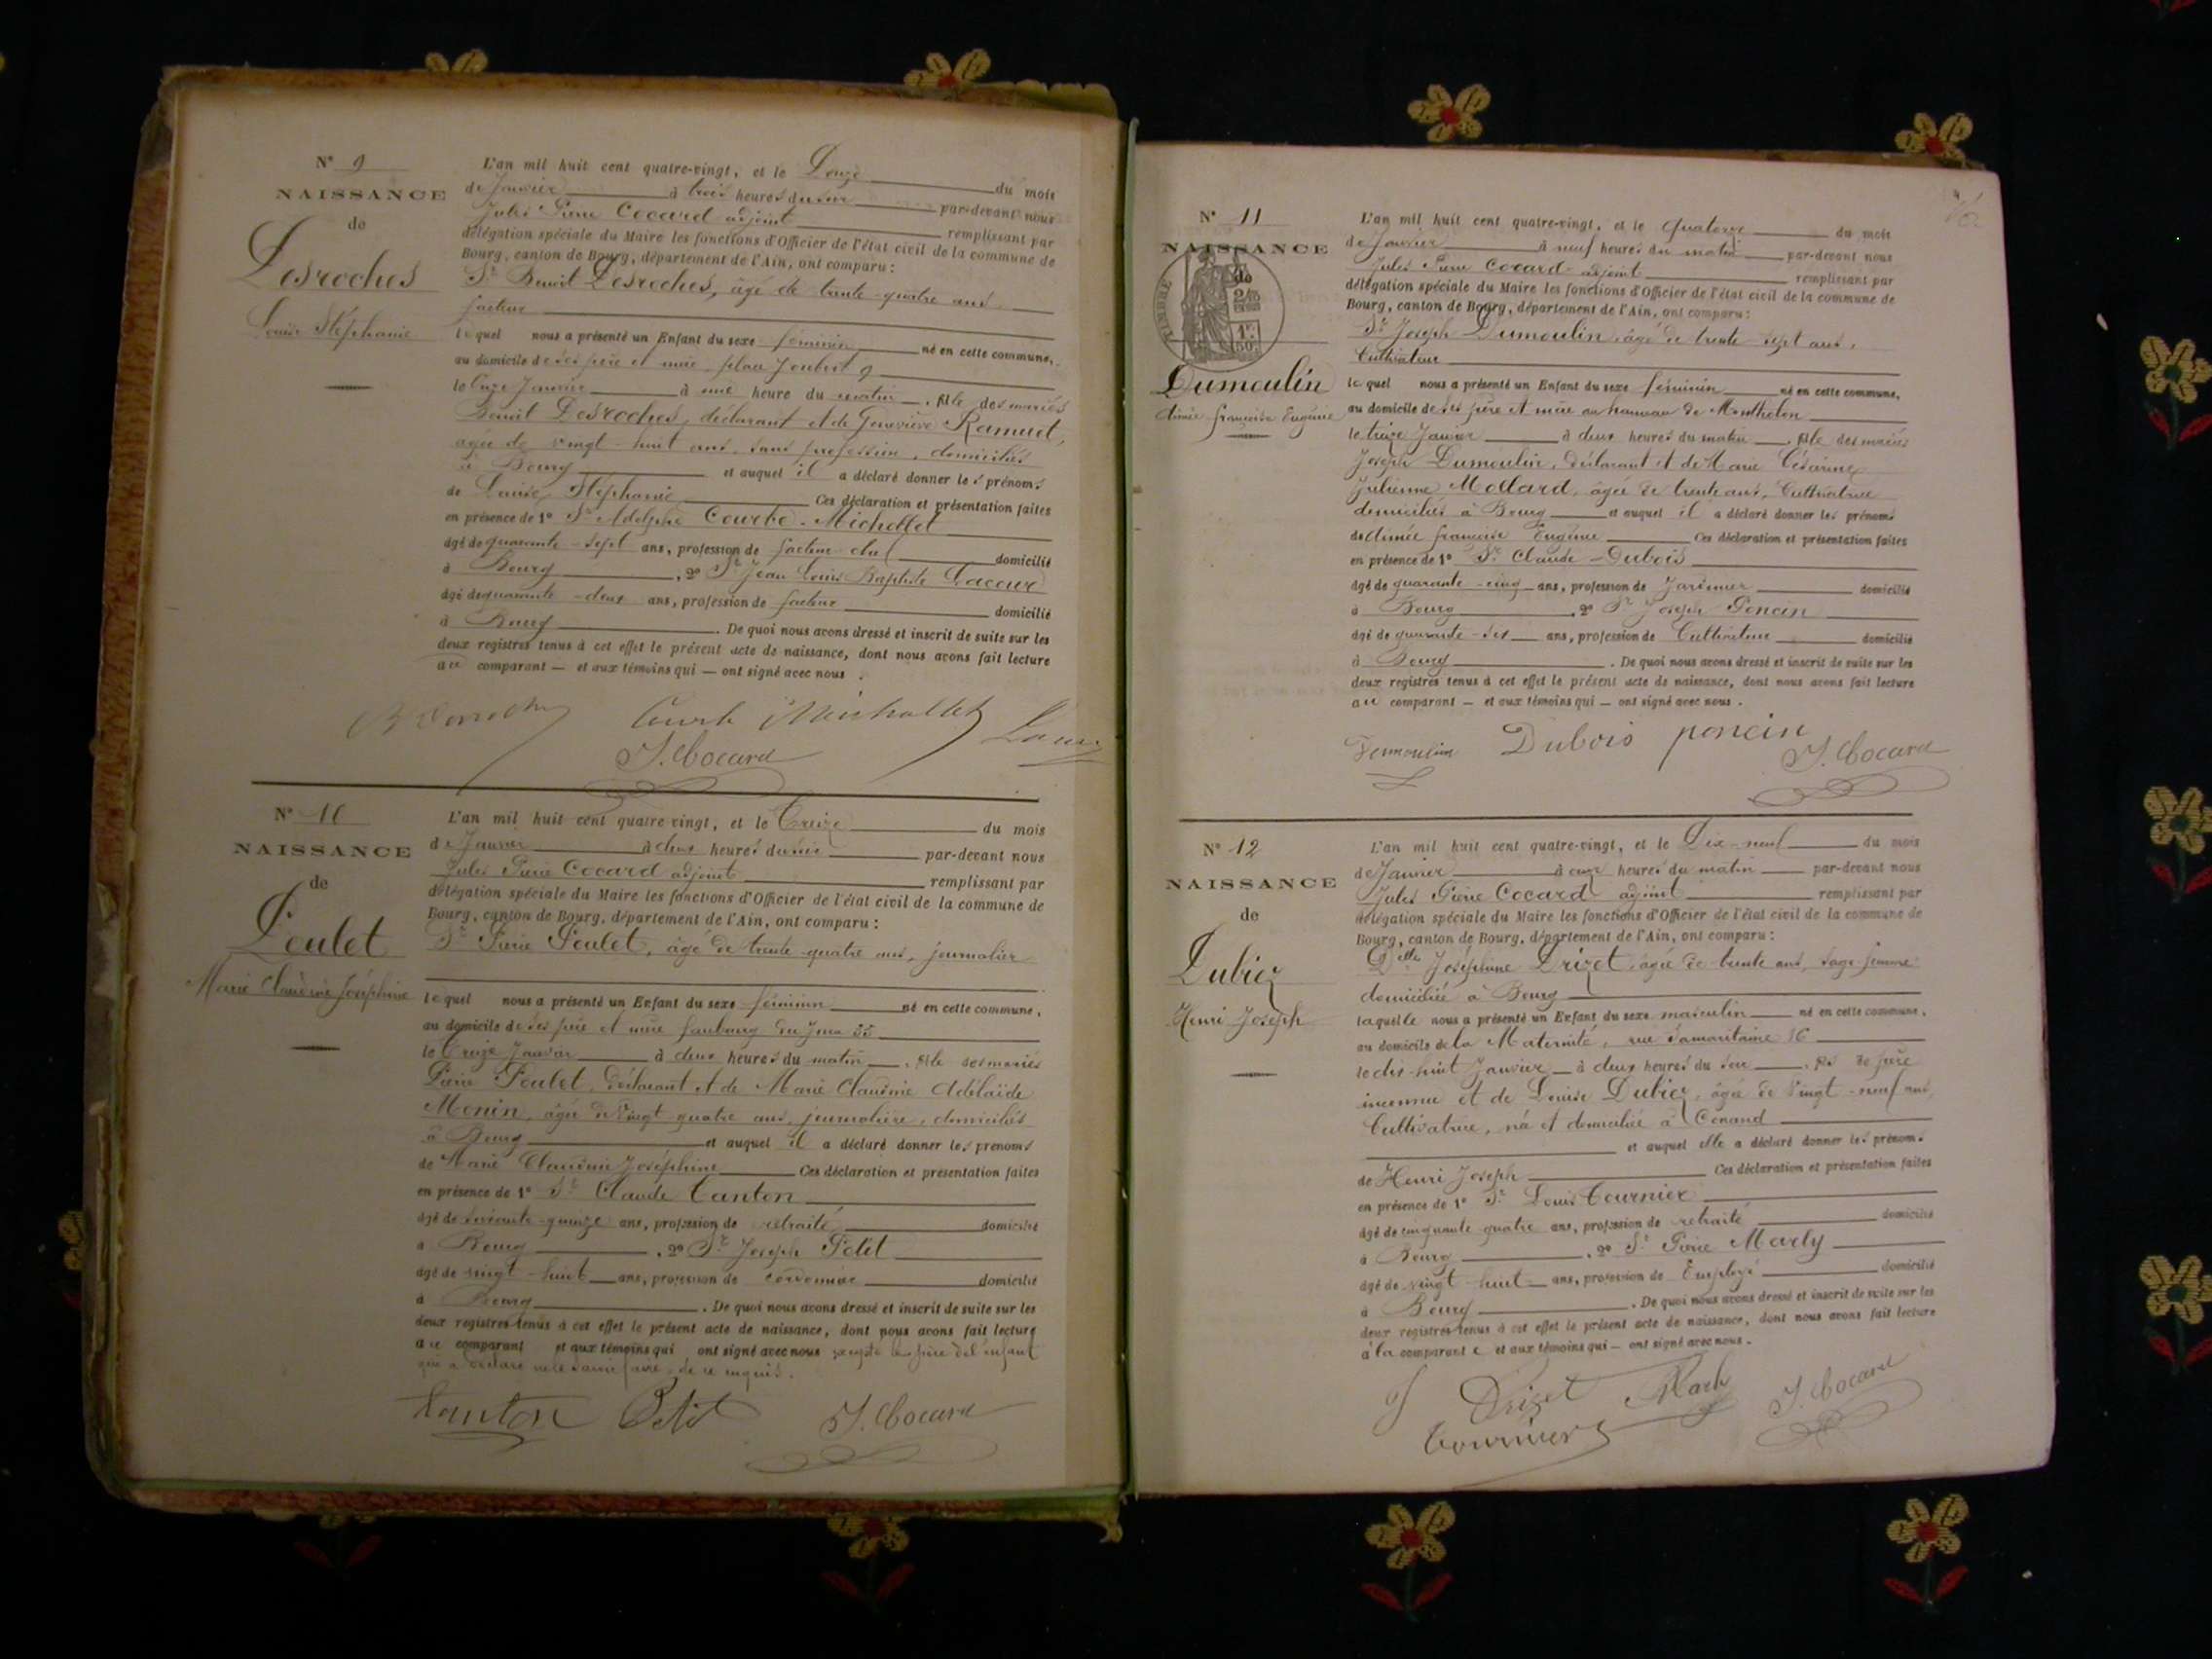 N° 9
NAISSANCE
de
Desroches
Louise Stéphanie
L'an mil huit cent quatre-vingt, et le Douze du mois
de Janvier à trois heures du soir par-devant nous
Jules Pierre Cocard adjoint remplissant par
délégation spéciale du Maire les fonctions d'Officier de l'état civil de la commune de
Bourg, canton de Bourg, département de l'Ain, ont comparu :
Sr Benoit Desroches, âgé de trente-quatre ans
facteur
lequel nous a présenté un Enfant du sexe féminin né en cette commune,
au domicile de ses père et mère, place Joubert 9
le Onze Janvier à une heure du matin, fille des mariés
Benoit Desroches, déclarant et de Geneviève Ramuet,
agée de vingt-huit ans, sans profession, domiciliés
à Bourg et auquel il a déclaré donner les prénoms
de Louise Stéphanie Ces déclaration et présentation faites
en présence de 1° Sr Adolphe Courbe-Michollet
âgé de quarante-sept ans, profession de facteur chef domicilié
à Bourg, 2° Sr Jean Louis Baptiste Lacour
âgé de quarante-deux ans, profession de facteur domicilié
à Bourg. De quoi nous avons dressé et inscrit de suite sur les
deux registres tenus à cet effet le présent acte de naissance, dont nous avons fait lecture
au comparant — et aux témoins qui — ont signé avec nous.
Courbe Michollet
J. Cocard
N° 10
NAISSANCE
de
Poulet
Marie Claudine Joséphine
L'an mil huit cent quatre-vingt, et le Treize du mois
de Janvier à deux heures du soir par-devant nous
Jules Pierre Cocard adjoint remplissant par
délégation spéciale du Maire les fonctions d'Officier de l'état civil de la commune de
Bourg, canton de Bourg, département de l'Ain, ont comparu :
Sr Pierre Poulet, âgé de trente-quatre ans, journalier
lequel nous a présenté un Enfant du sexe féminin né en cette commune,
au domicile de ses père et mère faubourg du Jura 55
le Treize Janvier à deux heures du matin, fille des mariés
Pierre Poulet, déclarant et de Marie Claudine Adélaïde
Monin, âgée de vingt quatre ans, journalière, domiciliés
à Bourg et auquel il a déclaré donner les prénoms
de Marie Claudine Joséphine Ces déclaration et présentation faites
en présence de 1° Sr Claude Tanton
âgé de soixante-quinze ans, profession de retraité domicilié
à Bourg, 2° Sr Joseph Petit
âgé de vingt-huit ans, profession de cordonnier domicilié
à Bourg. De quoi nous avons dressé et inscrit de suite sur les
deux registres tenus à cet effet le présent acte de naissance, dont nous avons fait lecture
au comparant et aux témoins qui ont signé avec nous excepté le père de l'enfant
qui a déclaré ne le savoir faire, de ce enquis.
Tanton Petit J. Cocard
N° 11
NAISSANCE
de
TIMBRE
Dumoulin
Aimée françoise Eugénie
L'an mil huit cent quatre-vingt, et le quatorze du mois
de Janvier à neuf heures du matin par-devant nous
Jules Pierre Cocard adjoint remplissant par
délégation spéciale du Maire les fonctions d'Officier de l'état civil de la commune de
Bourg, canton de Bourg, département de l'Ain, ont comparu :
Sr Joseph Dumoulin, âgé de trente-sept ans,
Cultivateur
lequel nous a présenté un Enfant du sexe féminin né en cette commune,
au domicile de ses père et mère au hameau de Montholon
le treize Janvier à deux heures du matin, fille des mariés
Joseph Dumoulin, déclarant et de Marie Césarine
Julienne Mollard, âgée de trente ans, Cultivatrice
domiciliés à Bourg et auquel il a déclaré donner les prénoms
de Aimée françoise Eugénie Ces déclaration et présentation faites
en présence de 1° Sr Claude Dubois
âgé de quarante-cinq ans, profession de Jardinier domicilié
à Bourg, 2° Sr Joseph Poncin
âgé de quarante-six ans, profession de Cultivateur domicilié
à Bourg. De quoi nous avons dressé et inscrit de suite sur les
deux registres tenus à cet effet le présent acte de naissance, dont nous avons fait lecture
au comparant — et aux témoins qui — ont signé avec nous.
Dumoulin Dubois poncin
J. Cocard
N° 12
NAISSANCE
de
Dubiez
Henri Joseph
L'an mil huit cent quatre-vingt, et le Dix-neuf du mois
de Janvier à onze heures du matin par-devant nous
Jules Pierre Cocard adjoint remplissant par
délégation spéciale du Maire les fonctions d'Officier de l'état civil de la commune de
Bourg, canton de Bourg, département de l'Ain, ont comparu :
Delle Joséphine Drizet, âgée de trente ans, sage-femme
domiciliée à Bourg
laquelle nous a présenté un Enfant du sexe masculin né en cette commune,
au domicile de la Maternité, rue Samaritaine 16
le dix-huit Janvier à deux heures du soir, fils de père
inconnu et de Louise Dubiez, âgée de vingt-neuf ans,
Cultivatrice, née et domiciliée à Cénand
et auquel elle a déclaré donner les prénoms
de Henri Joseph Ces déclaration et présentation faites
en présence de 1° Sr Louis Tournier
âgé de cinquante-quatre ans, profession de retraité domicilié
à Bourg, 2° Sr Pierre Marly
âgé de vingt-huit ans, profession de Employé domicilié
à Bourg. De quoi nous avons dressé et inscrit de suite sur les
deux registres tenus à cet effet le présent acte de naissance, dont nous avons fait lecture
à la comparante et aux témoins qui — ont signé avec nous.
J Drizet J. Cocard
Tournier